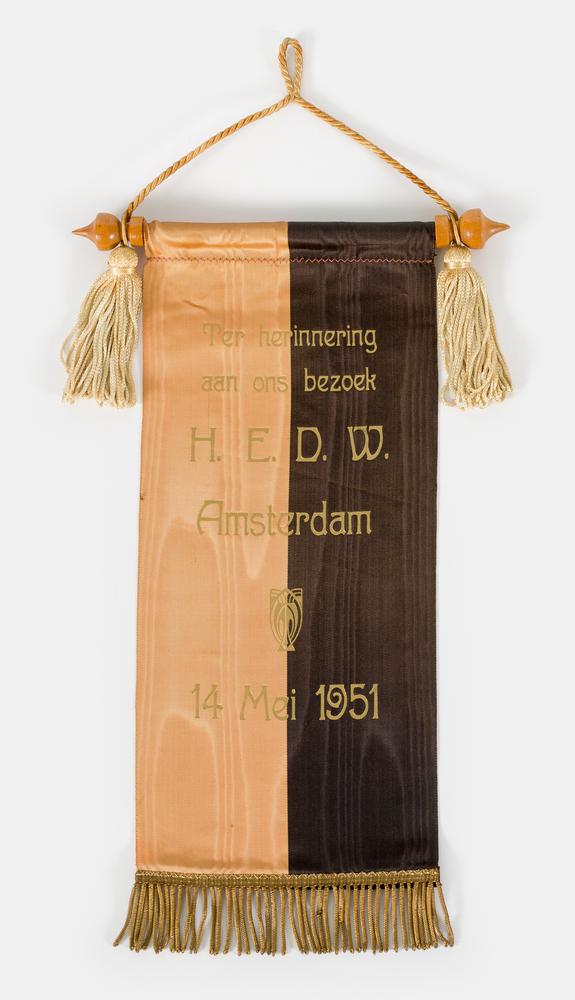 Ter herinnering
aan ons bezoek
H. E. D. W.
Amsterdam
14 Mei 1951